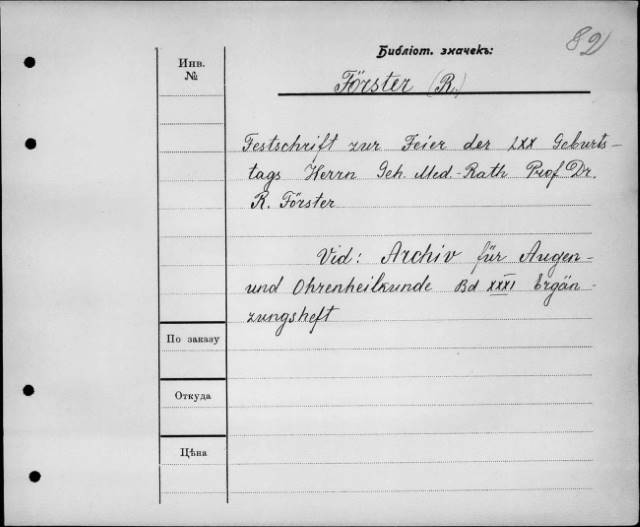 82
Библіот. значекъ:
Инв.
№
Förster (R.)
Festschrift zur Feier der LXX Geburts-
tags Herrn Geh. Med.-Rath Prof Dr.
R. Förster
Vid: Archiv für Augen-
und Ohrenheilkunde Bd XXXI Ergän-
zungsheft
По заказу
Откуда
Цѣна